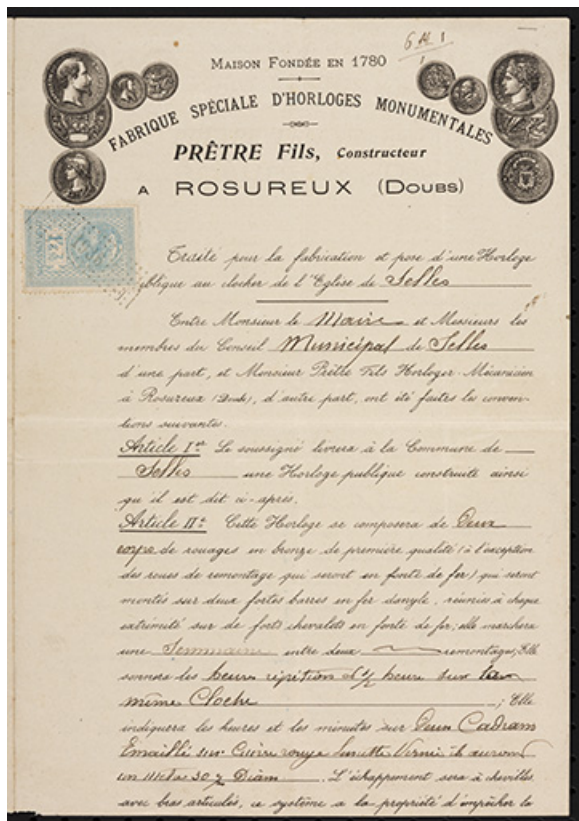 6 M 1
MAISON FONDÉE EN 1780
FABRIQUE SPÉCIALE D'HORLOGES MONUMENTALES
PRÊTRE Fils, Constructeur
A ROSUREUX (DOUBS)
Traité pour la fabrication et pose d'une Horloge
publique au clocher de l'Eglise de Selles
Entre Monsieur le Maire et Messieurs les
membres du Conseil Municipal de Selles
d'une part, et Monsieur Prêtre Fils Horloger-Mécanicien
à Rosureux (Doubs), d'autre part, ont été faites les conven-
tions suivantes.
Article Ier Le soussigné livrera à la Commune de
Selles une Horloge publique construite ainsi
qu'il est dit ci-après.
Article II: Cette Horloge se composera de Deux
corps de rouages en bronze de première qualité (à l'exception
des roues de remontage qui seront en fonte de fer) qui seront
montés sur deux fortes barres en fer d'angle, réunies à chaque
extrémité sur de forts chevalets en fonte de fer; elle marchera
une Semmaine entre deux remontages; Elle
sonnera les heures répétition et ½ heure sur la
même Cloche ; Elle
indiquera les heures et les minutes sur Deux Cadrans
Emaillé sur Cuivre rouge lunette Verni ils auront
un Mètre 30 % Diam . L'échappement sera à chevilles
avec bras articulés, ce système a la propriété d'empêcher la